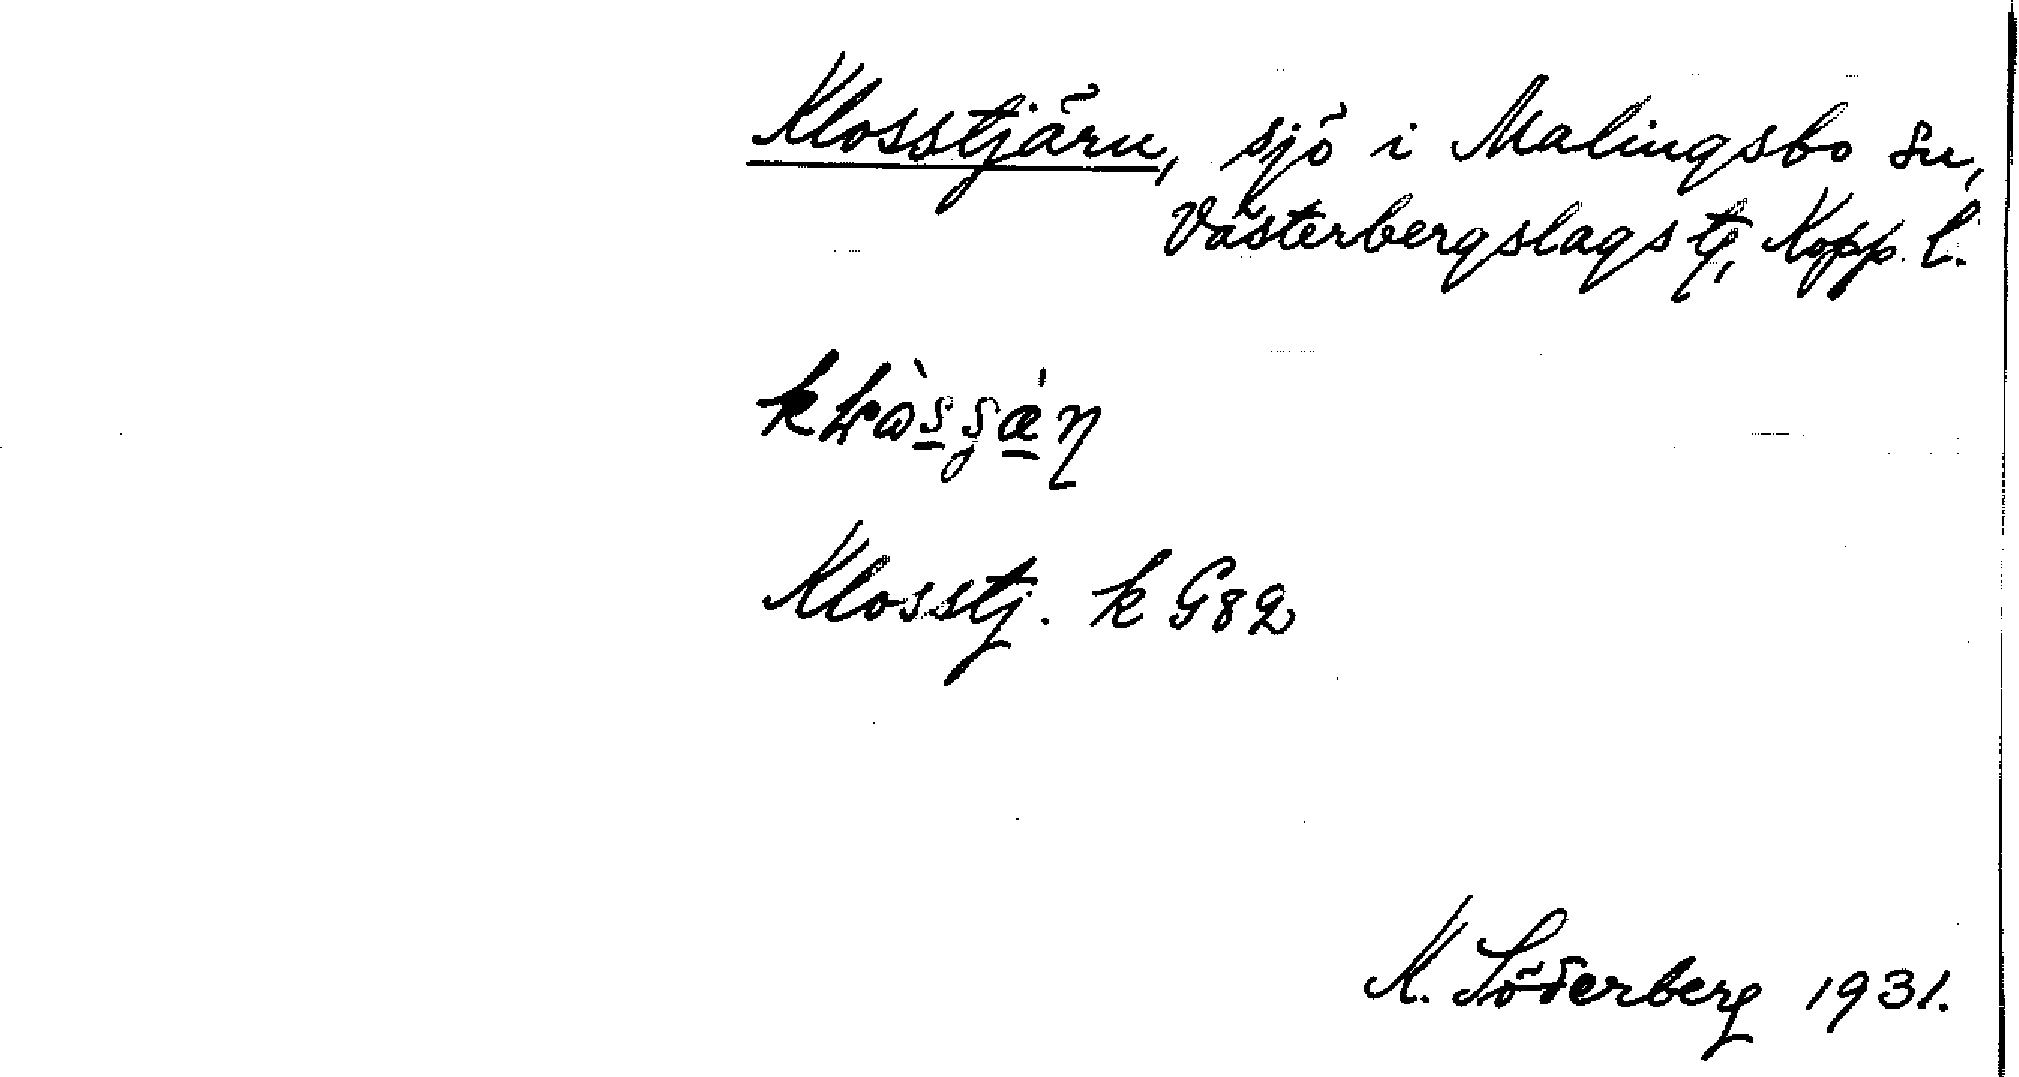 Klosstjärn, sjö i Malingsbo sn,
Västerbergslags tg, Kopp. l.
Klosstj. k G82
K. Söderberg 1931.